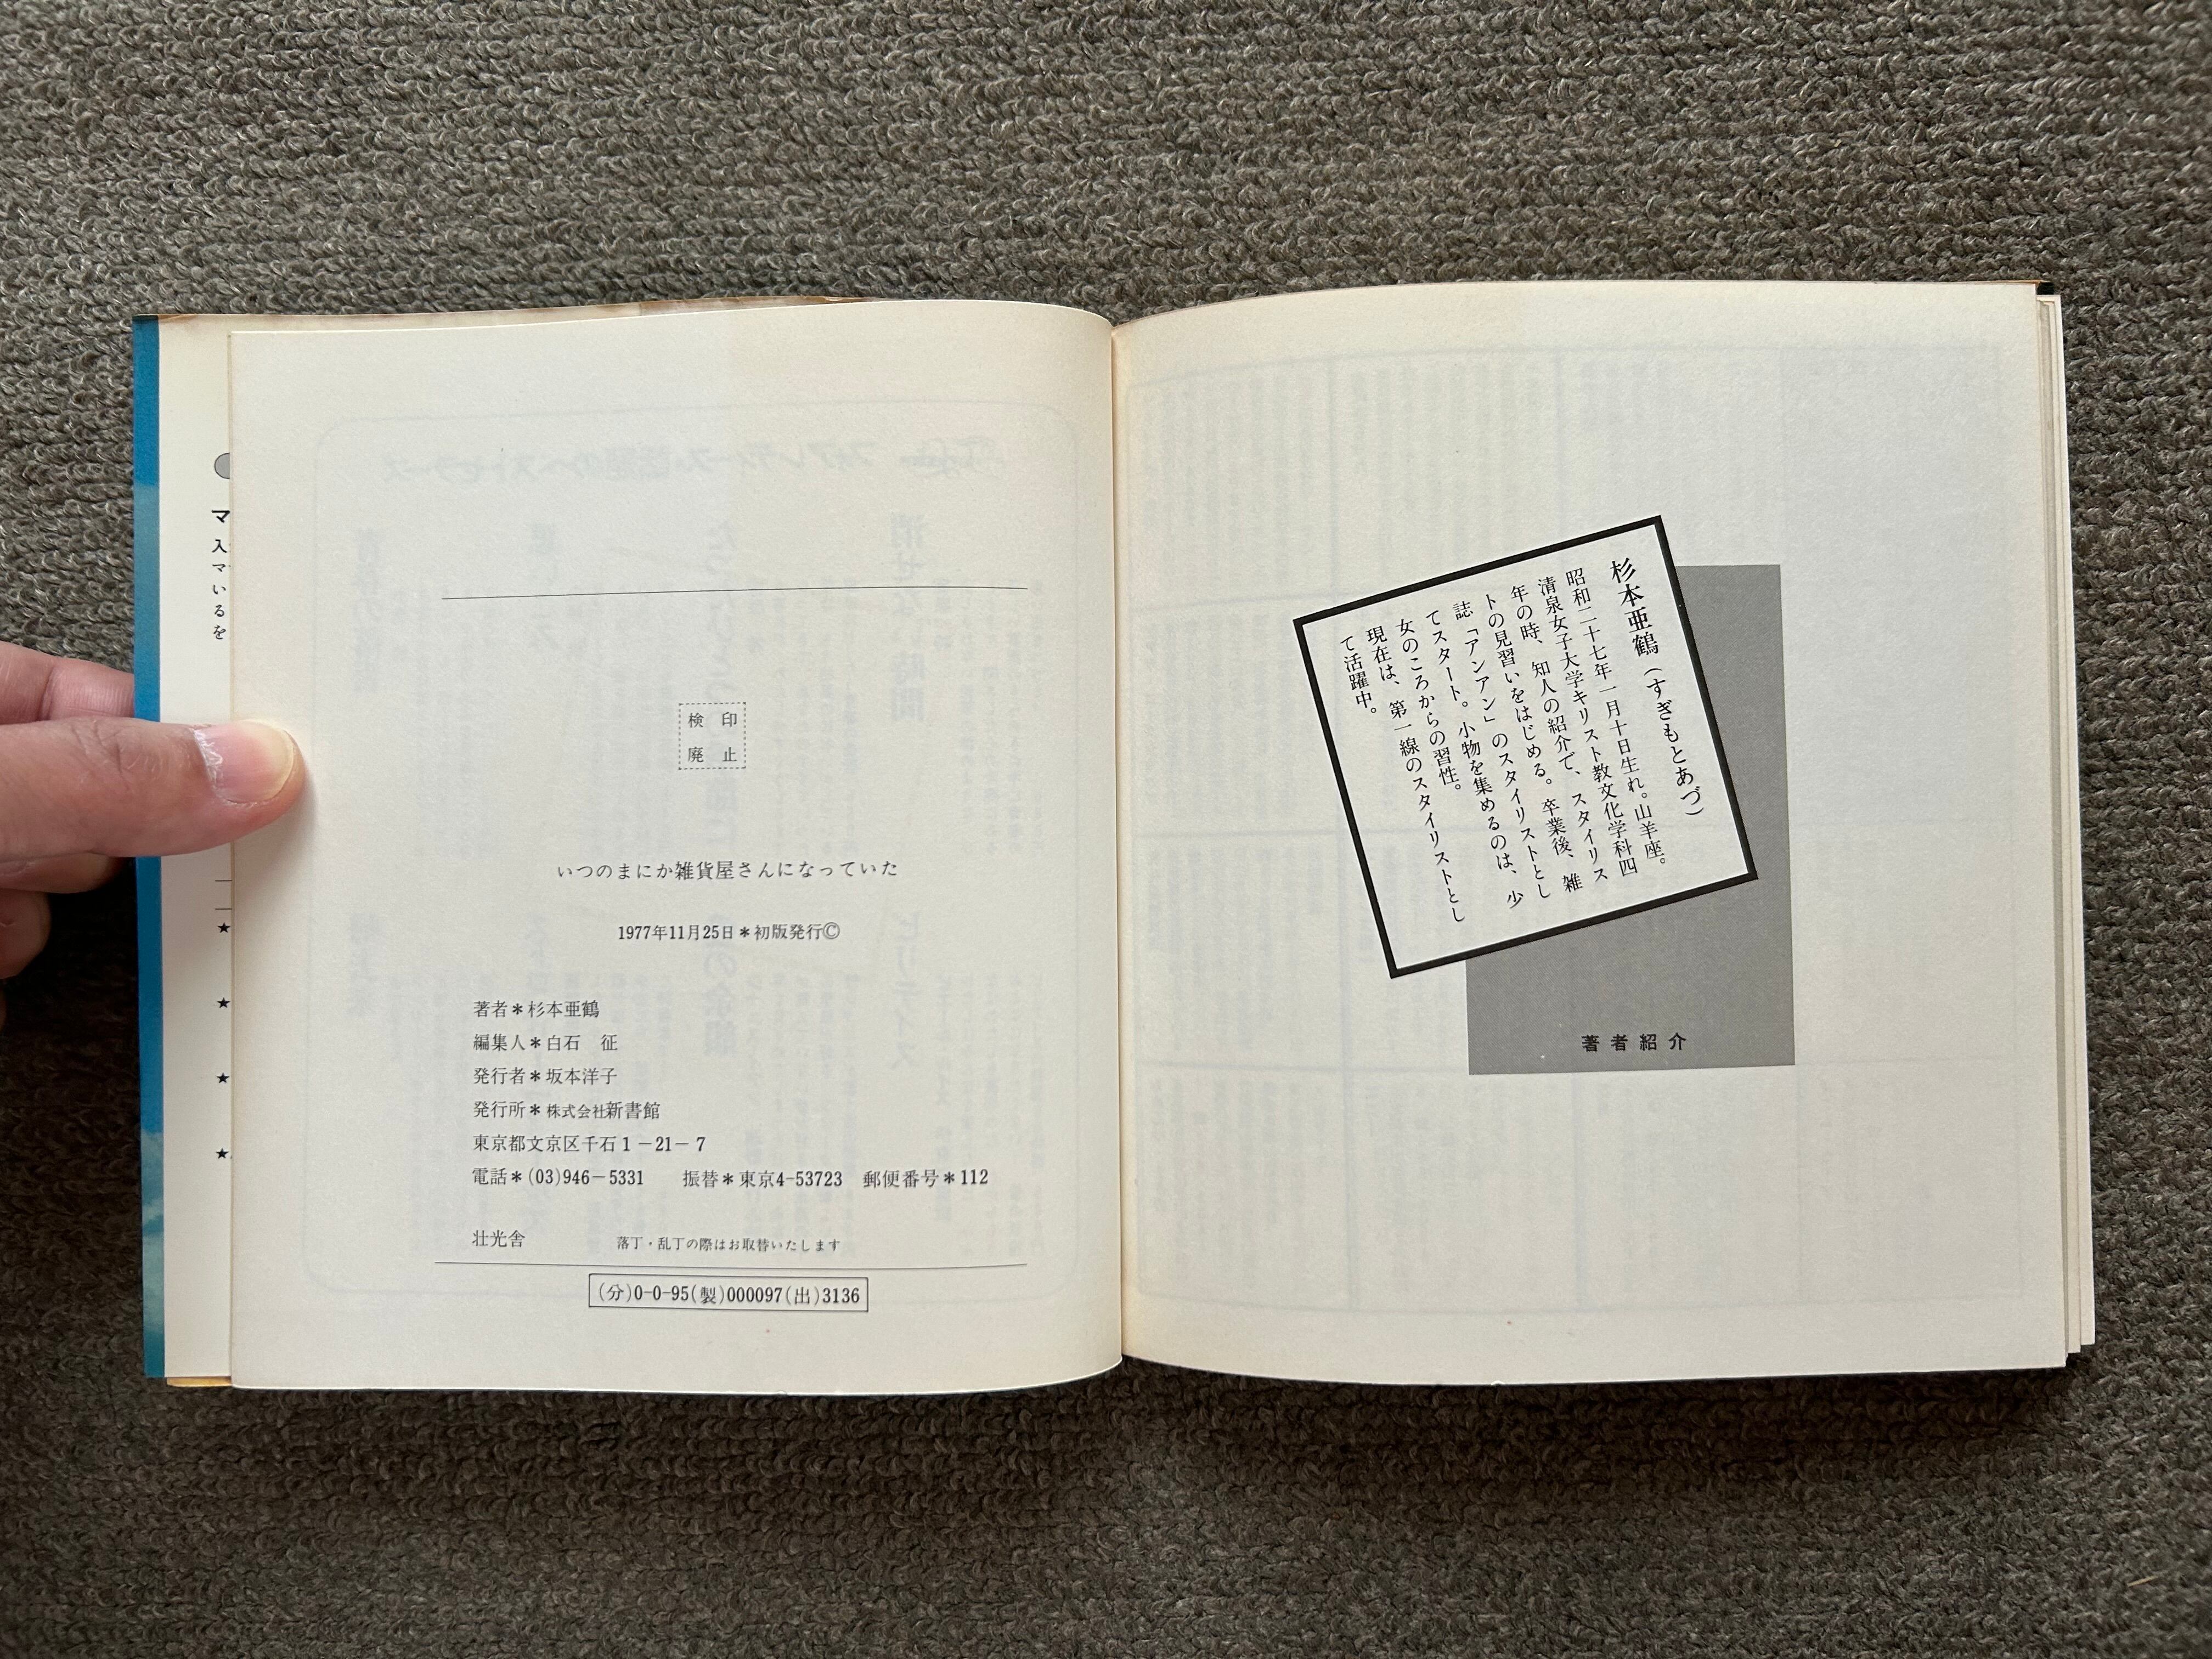 杉本亜鶴（すぎもとあづ）
昭和二十七年一月十日生れ。山羊座。
清泉女子大学キリスト教文化学科四
年の時、知人の紹介で、スタイリス
トの見習いをはじめる。卒業後、雑
誌「アンアン」のスタイリストとし
てスタート。小物を集めるのは、少
女のころからの習性。
現在は、第一線のスタイリストとし
て活躍中。
著者紹介
検印
廃止
いつのまにか雑貨屋さんになっていた
1977年11月25日＊初版発行Ⓒ
著者＊杉本亜鶴
編集人＊白石　征
発行者＊坂本洋子
発行所＊株式会社新書館
東京都文京区千石1－21－7
電話＊(03)946－5331　振替＊東京4-53723　郵便番号＊112
壮光舎　落丁・乱丁の際はお取替いたします
(分)0-0-95(製)000097(出)3136
マ
入
マ
い
る
を
★
★
★
★